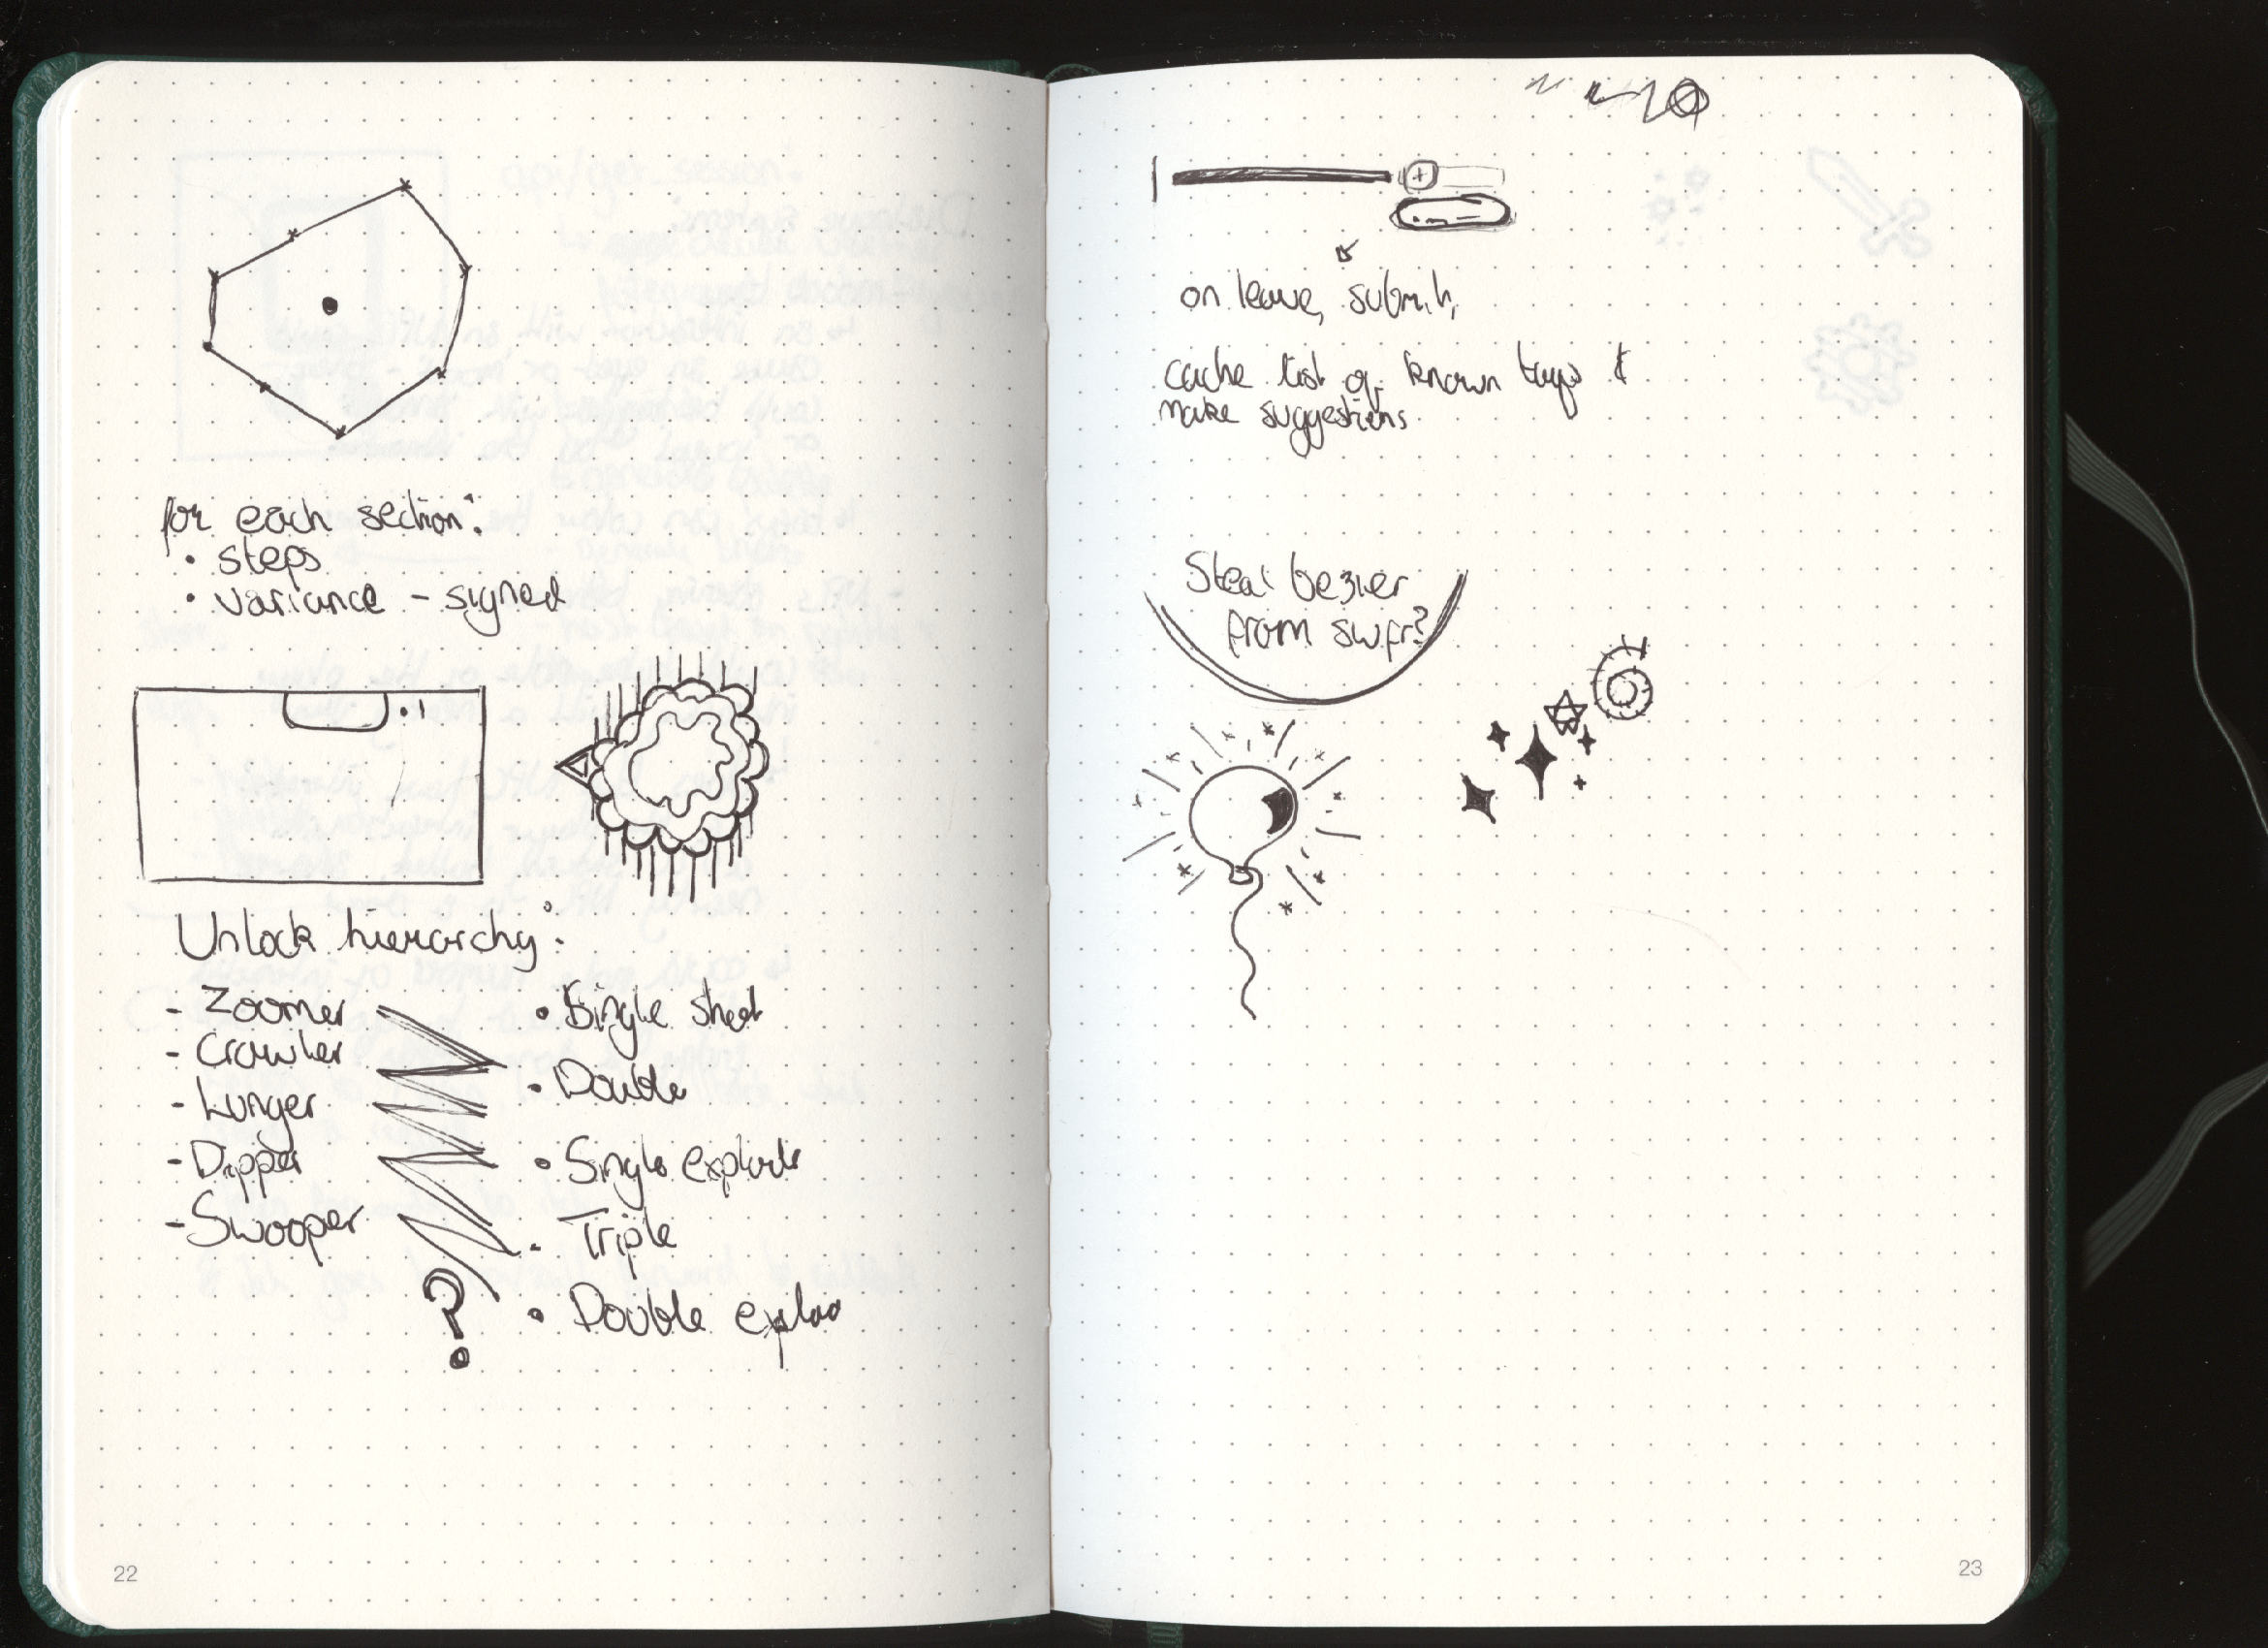 for each section:
• steps
• variance - signed
Unlock hierarchy:
- Zoomer
- Crawler
- Lunger
- Dipper
- Swooper
?
• Single shot
• Double
• Single explode
• Triple
• Double explo
22
on leave, submit,
cache list of known tags &
make suggestions
Steal bezier
from swfr?
23